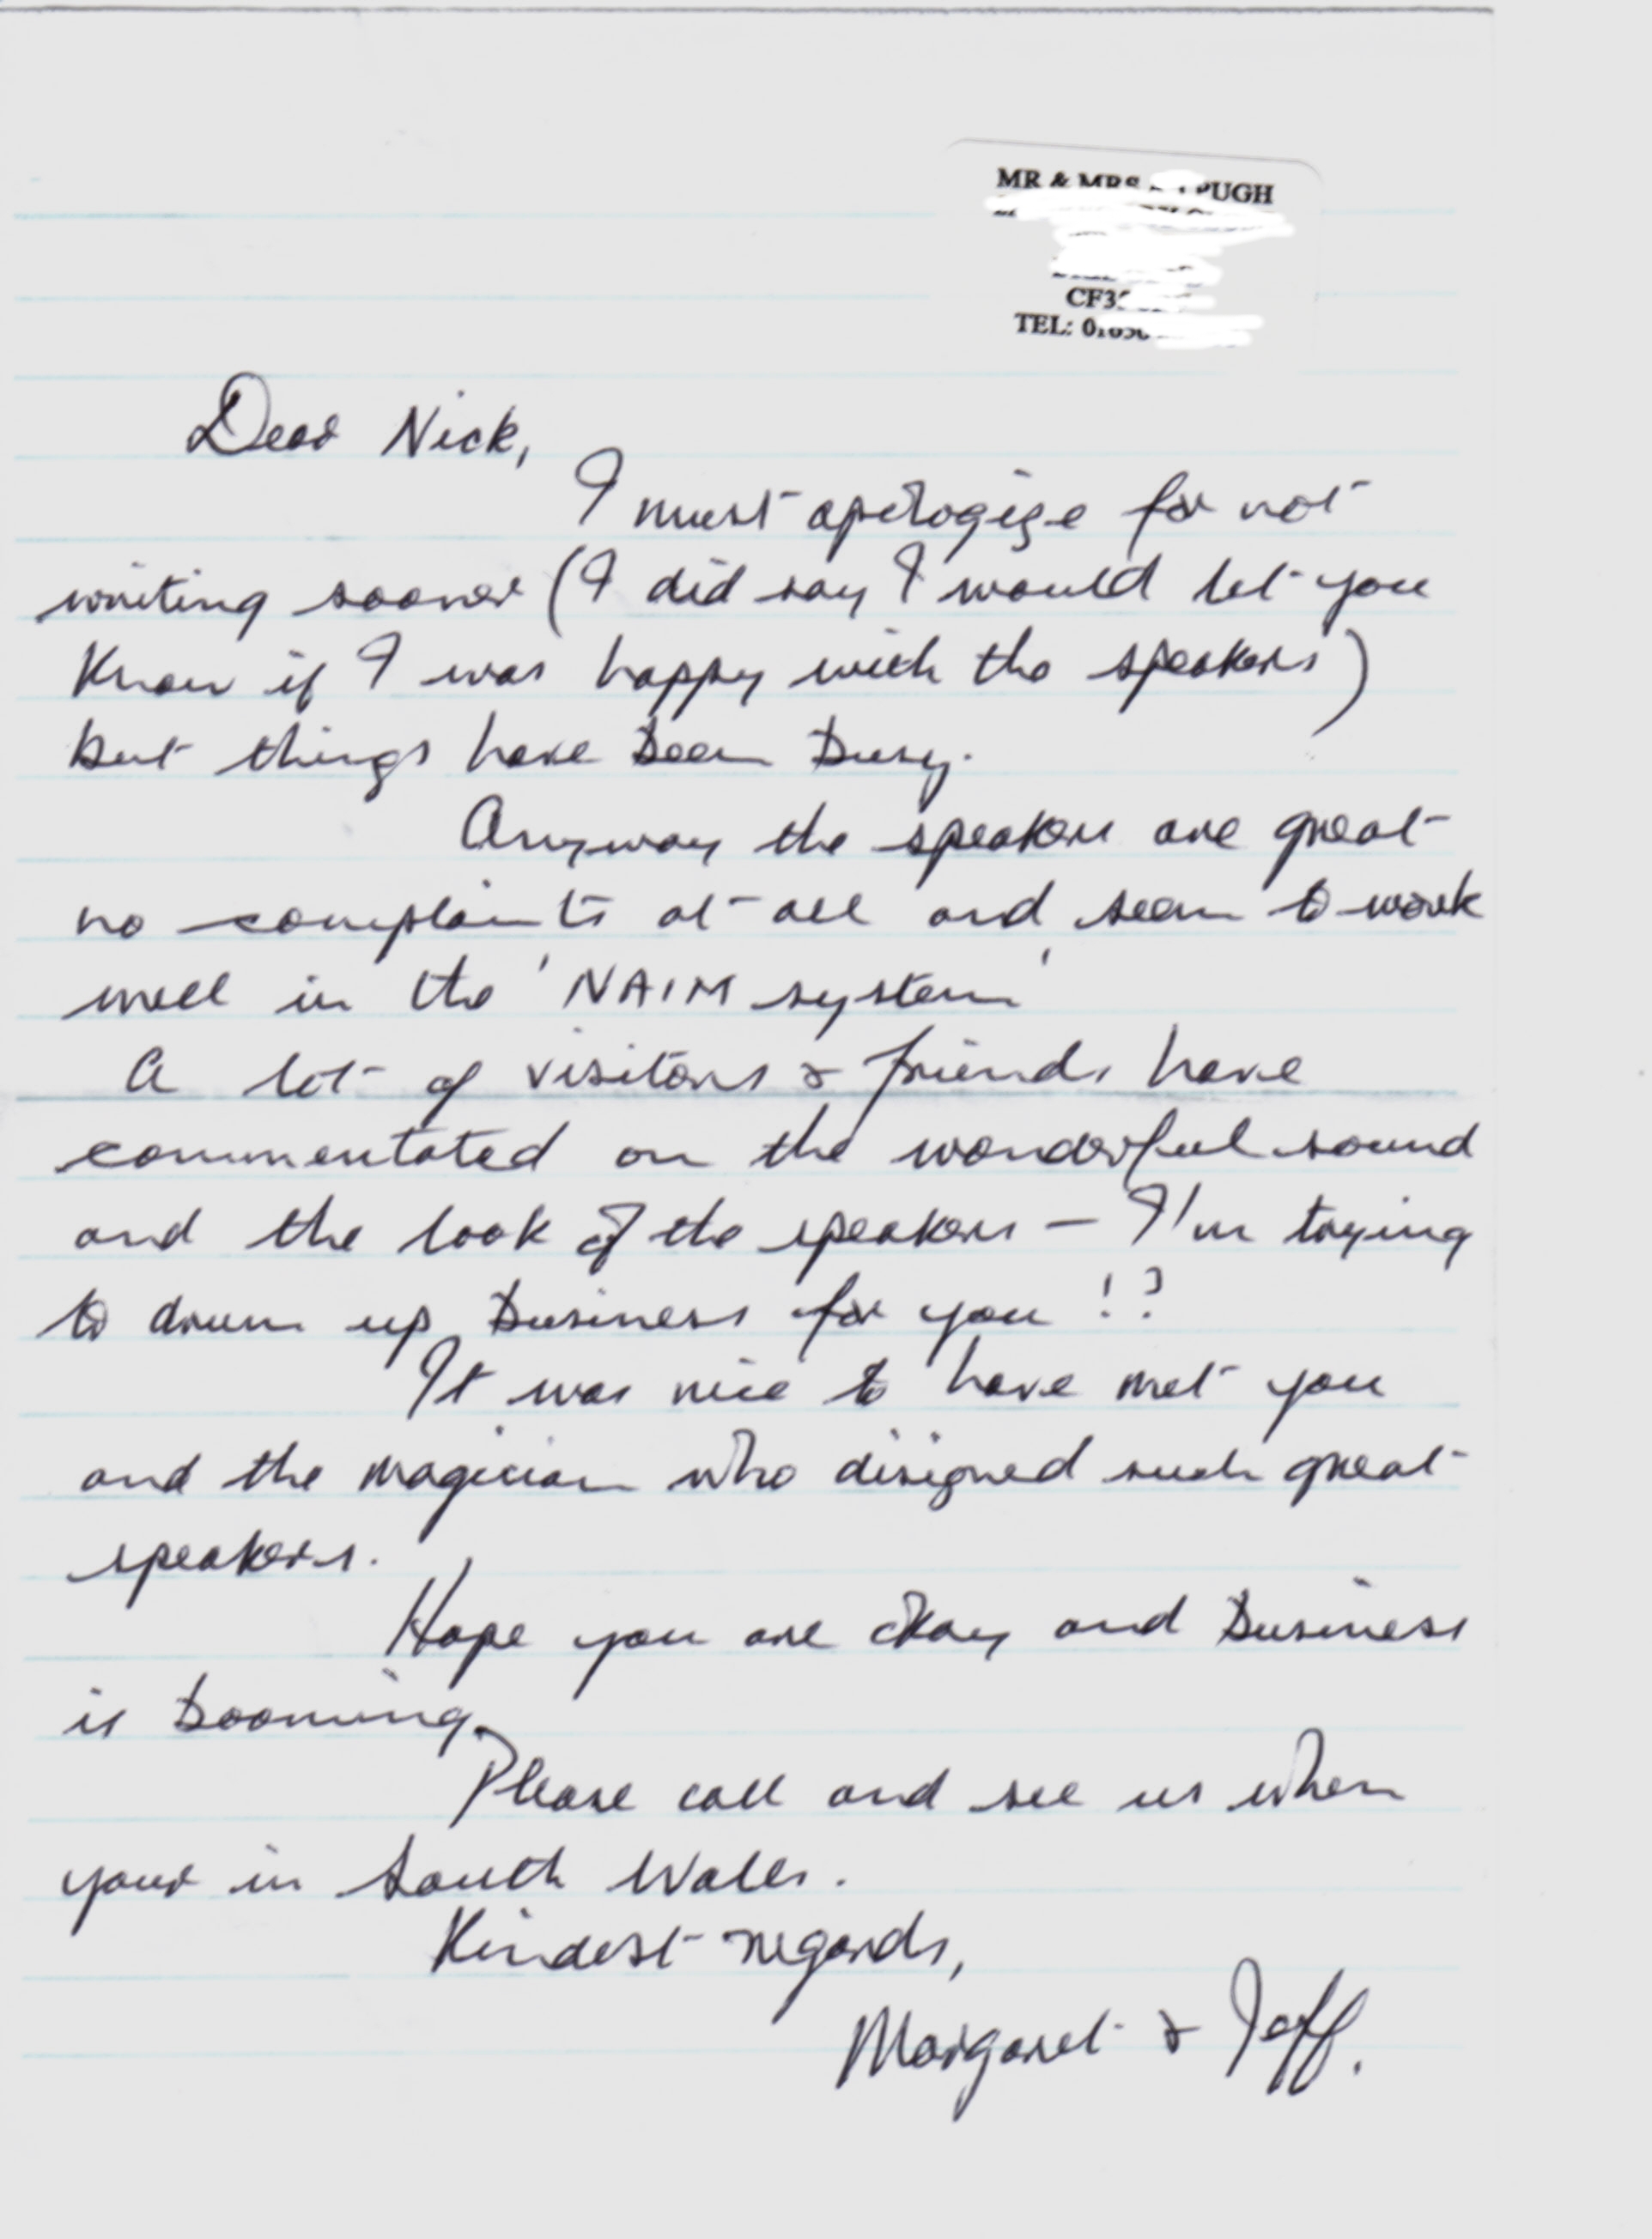 MR & MRS PUGH
CF3
TEL: 01656
Dear Nick,
I must apologize for not
writing sooner (I did say I would let you
know if I was happy with the speakers)
but things have been busy.
Anyway the speakers are great
no complaints at all and seem to work
well in the 'NAIM system'
A lot of visitors & friends have
commentated on the wonderful sound
and the look of the speakers – I'm trying
to drum up business for you !?
It was nice to have met you
and the magician who disigned such great
speakers.
Hope you are okay and business
is booming.
Please call and see us when
your in South Wales.
Kindest regards,
Margaret & Jeff.